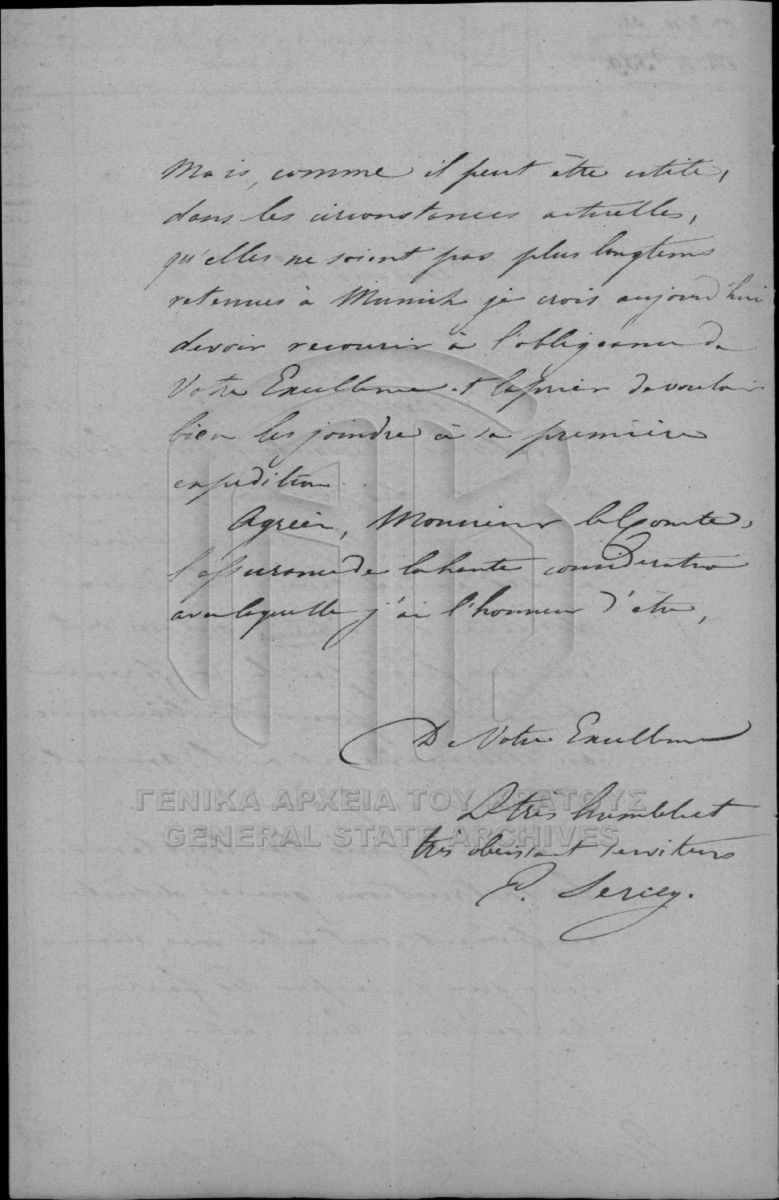 Mais, comme il peut être utile,
dans les circonstances actuelles,
qu'elles ne soient pas plus longtems
retenues à Munich je crois aujourd'hui
devoir recourir à l'obligeance de
Votre Excellence et la prier de vouloir
bien les joindre à sa première
expédition.
Agréez, Monsieur le Comte,
l'assurance de la haute considération
avec laquelle j'ai l'honneur d'être,
De Votre Excellence
ΓΕΝΙΚΑ ΑΡΧΕΙΑ ΤΟΥ ΚΡΑΤΟΥΣ
GENERAL STATE ARCHIVES
Le très humble et
très obéissant serviteur
Sercey.